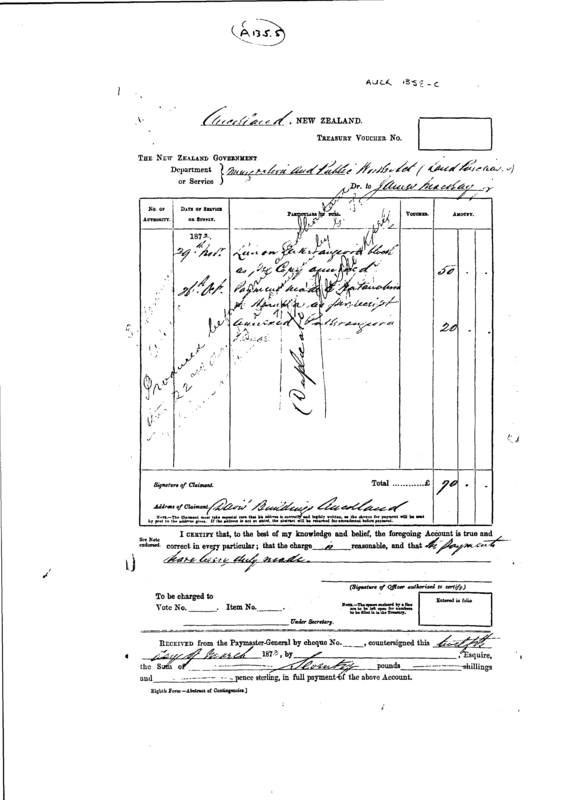 A135.5
AUCK 135E-C
Auckland, NEW ZEALAND.
TREASURY VOUCHER NO.
THE NEW ZEALAND GOVERNMENT
Department or Service } Immigration and Public Works (Land Purchase)
Dr. to James Mackay Jr
NO. OF AUTHORITY.
DATE OF SERVICE OR SUPPLY.
PARTICULARS
VOUCHER.
AMOUNT.
1872.
29th Nov. block
as per Copy annexed 50 . .
26th Oct. Payment made to
as per receipt
annexed 20 . .
(Duplicate
Produced before
22
Signature of Claimant. Total ............£ 70 . .
Address of Claimant, Buildings Auckland
NOTE.—The Claimant must take especial care that his address is correctly and legibly written, as the cheque for payment will be sent
by post to the address given. If the address is not so stated, the abstract will be returned for amendment before payment.
See Note endorsed.
I CERTIFY that, to the best of my knowledge and belief, the foregoing Account is true and
correct in every particular; that the charge is reasonable, and that the payments
have been duly made.
(Signature of Officer authorised to certify.)
To be charged to
Vote No. ______. Item No. ______.
NOTE.—The spaces enclosed by a line are to be left open for numbers to be filled in in the Treasury.
Entered in folio
Under Secretary.
RECEIVED from the Paymaster-General by cheque No. ____, countersigned this
day of March 1873, by ______, Esquire,
the Sum of Seventy pounds shillings
and pence sterling, in full payment of the above Account.
Eighth Form—Abstract of Contingencies.]